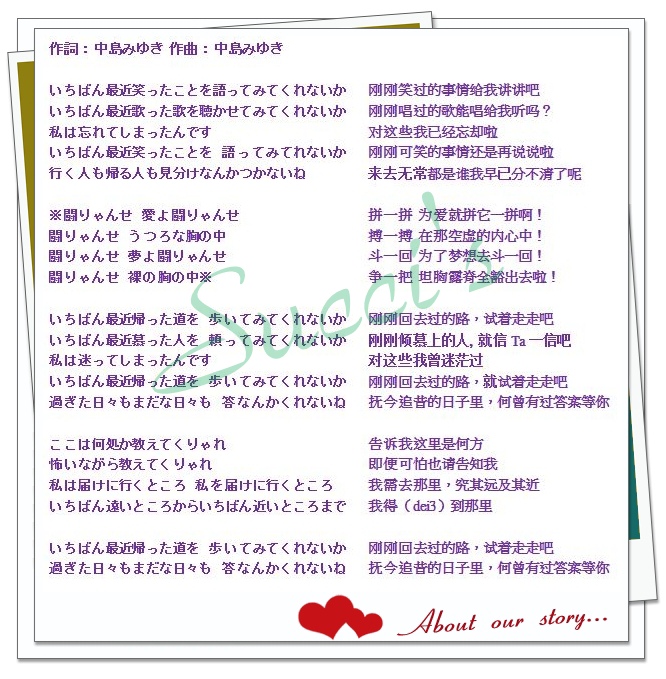 作詞：中島みゆき 作曲：中島みゆき
いちばん最近笑ったことを語ってみてくれないか 刚刚笑过的事情给我讲讲吧
いちばん最近歌った歌を聴かせてみてくれないか 刚刚唱过的歌能唱给我听吗？
私は忘れてしまったんです 对这些我已经忘却啦
いちばん最近笑ったことを 語ってみてれないか 刚刚可笑的事情还是再说说啦
行く人も帰る人も見分けなんかつかないね 来去无常都是谁我早已分不清了呢
※闘りゃんせ 愛よ闘りゃんせ 拼一拼 为爱就拼它一拼啊！
闘りゃんせ うつろな胸の中 搏一搏 在那空虚的内心中！
闘りゃんせ 夢よ闘りゃんせ 斗一回 为了梦想去斗一回！
闘りゃんせ 裸の胸の中※ 争一把 坦胸露脊全豁出去啦！
いちばん最近帰った道を 歩いてみてくれないか 刚刚回去过的路，试着走走吧
いちばん最近慕った人を 頼ってみてくれないか 刚刚倾慕上的人, 就信 Ta 一信吧
私は迷ってしまったんです 对这些我曾迷茫过
いちばん最近帰った道を 歩いてみてくれないか 刚刚回去过的路，就试着走走吧
過ぎた日々もまだな日々も 答なんかくれないね 抚今追昔的日子里，何曾有过答案等你
ここは何処か教えてくりゃれ 告诉我这里是何方
怖いながら教えてくりゃれ 即便可怕也请告知我
私は届けに行くところ 私を届けに行くところ 我需去那里，究其远及其近
いちばん遠いところからいちばん近いところまで 我得（dei3）到那里
いちばん最近帰った道を 歩いてみてくれないか 刚刚回去过的路，试着走走吧
過ぎた日々もまだな日々も 答なんかくれないね 抚今追昔的日子里，何曾有过答案等你
Succi's
About our story...